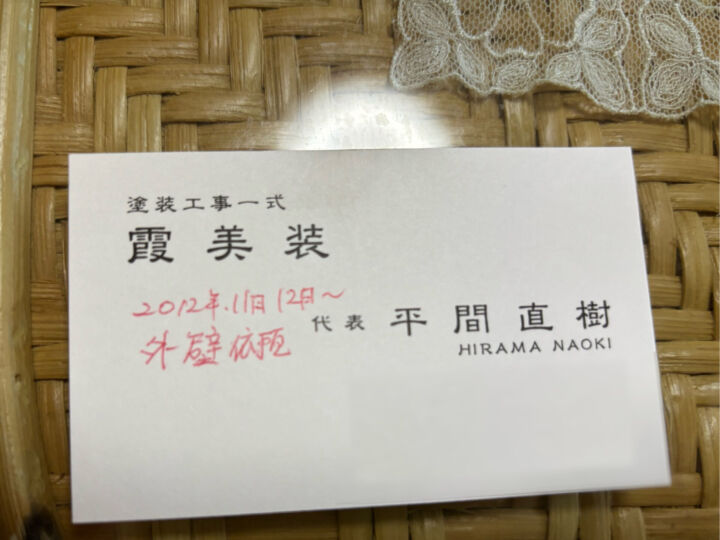 塗装工事一式
霞美装
2012年.11月12日~
外壁依頼
代表 平間直樹
HIRAMA NAOKI